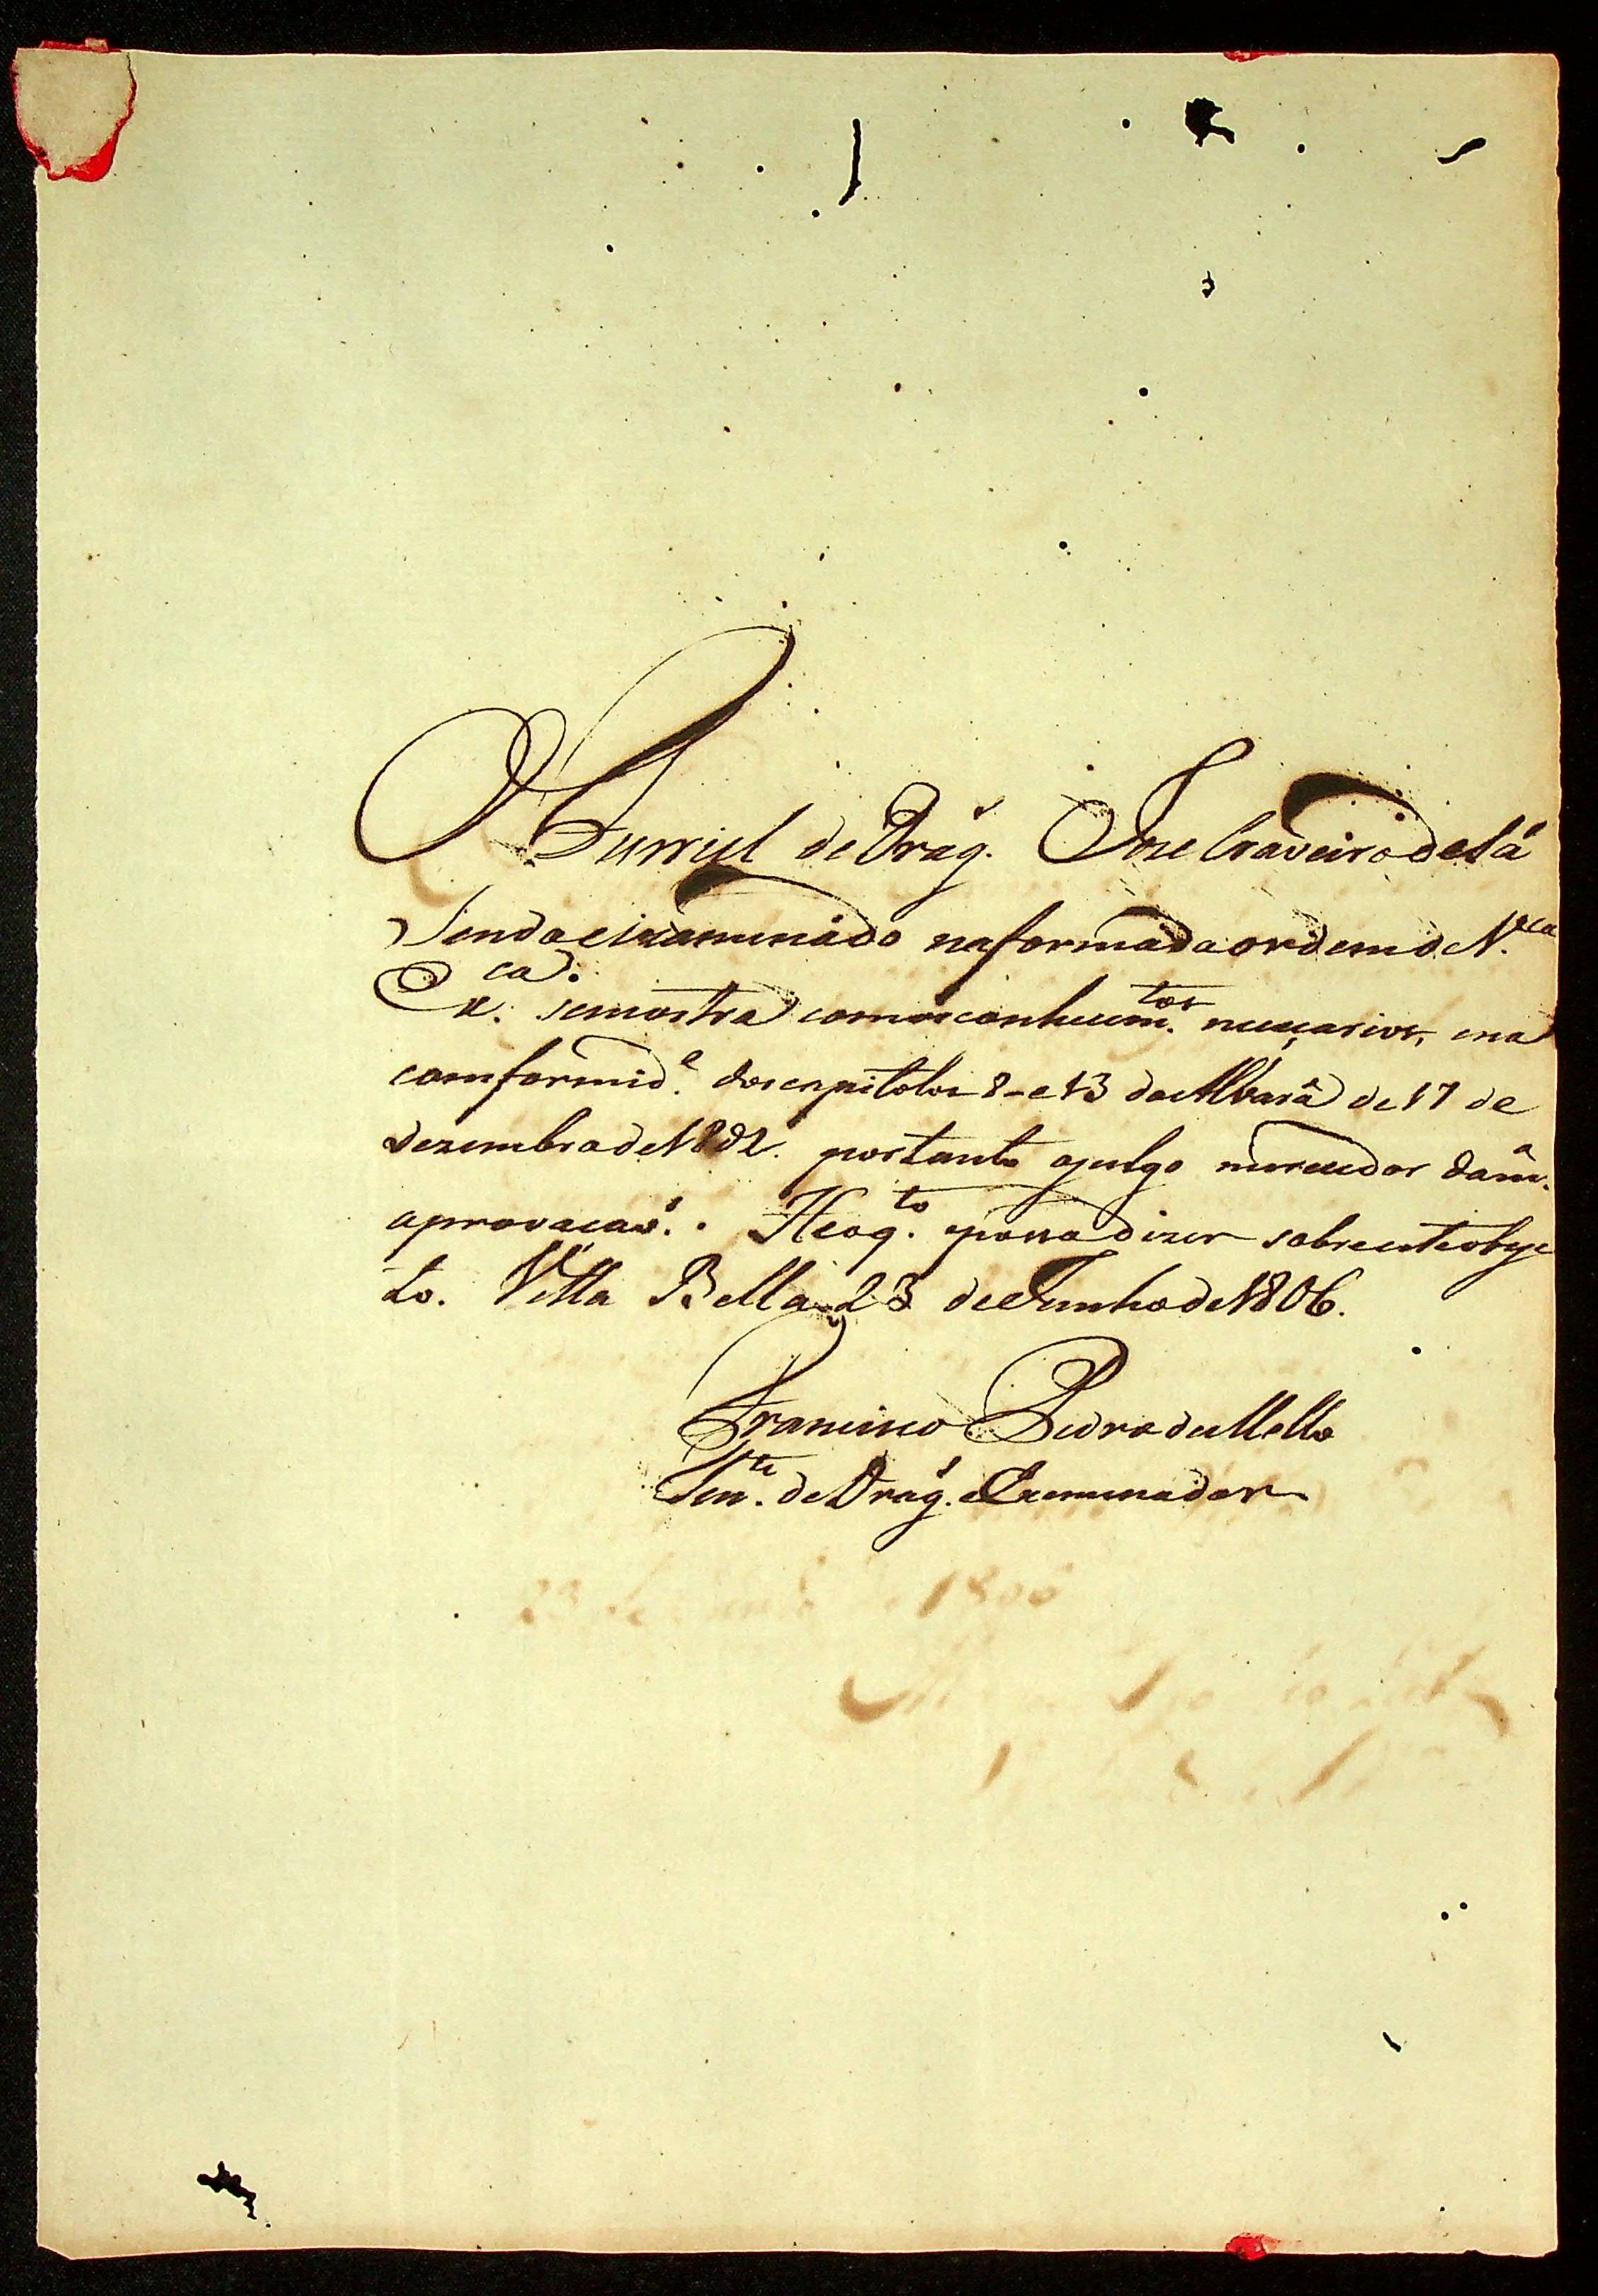 O Furriel de Drag.s Joze Craveiro de Sá
sendo eixaminádo na forma da ordem de V.ca
Ex.ca se mostra com os conhecim.tos neceçarios, e na
comformid.e dos capitolos 8 - e 13 do Alvará de 17 de
Dezembro de 1802. portanto o julgo merecedor da m.a
aprovacaõ. He oq.to posso dizer sobre este obje
to. Villa Bella 23 de Junho de 1806.
Francisco Pedro de Mello
Ten.te de Drag.s Exeminador
23 de 1806